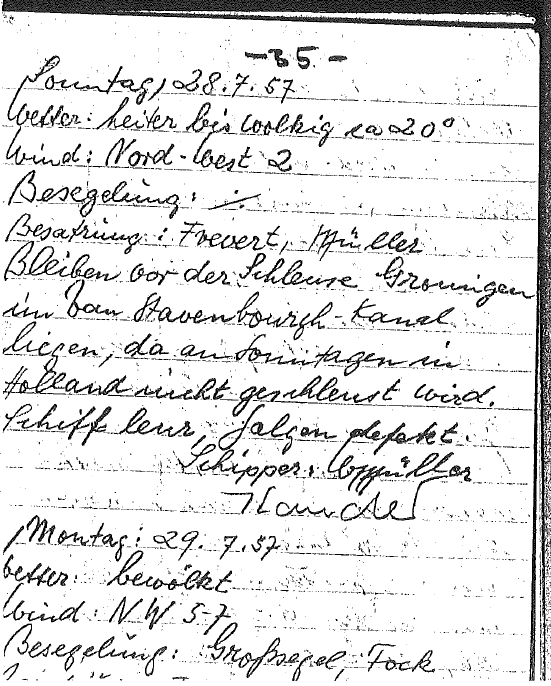 -35-
Sonntag, 28.7.57
Wetter: heiter bis wolkig ca 20°
Wind: Nord-West 2
Besegelung: ./.
Besatzung: Frevert, Müller
Bleiben vor der Schleuse Groningen
im Van Stavenbourgh-Kanal
liegen, da an Sonntagen in
Holland nicht geschleust wird.
Schiff lenz, Galgen defekt.
Schipper: Müller
Montag: 29.7.57
Wetter: bewölkt
Wind: NW 5-7
Besegelung: Großsegel, Fock